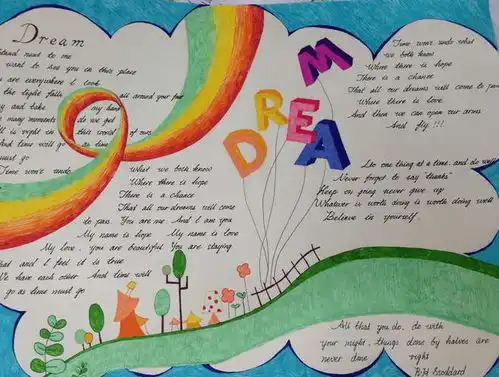 Dream
stand next to me
want to see you in this place
are everywhere I look
the light falls all around your feet
and take my hand
many moments do we get
all is right in this world of ours
And time will go as time
must go
Time won't undo What we both know
Where there is hope
There is a chance
That all our dreams will come
to pass. You are me And I am you
My name is hope My name is love
My love, you are beautiful You are staying
that and I feel it is true
We have each other And time will
go as time must go
DREAM
Time won't undo what
we both know
Where there is hope
There is a chance
That all our dreams will come to pass
Where there is love
And then we can open our arms
And fly!!!
Do one thing at a time, and do well
Never forget to say "thanks"
Keep on going never give up
Whatever is worth doing is worth doing well
Believe in yourself
All that you do, do with
your might, things done by halves are
never done right
Stoddard